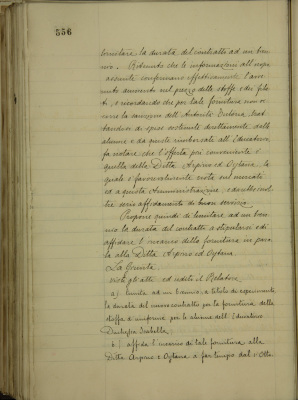 556
limitare la durata del contratto ad un bien
nio. Ritenuto che le informazioni all'uopo
assunte confermano effettivamente l'avve
nuto aumento nel prezzo delle stoffe e dei filo
ti, e ricordando che per tale fornitura non oc
corre la sanzione dell'Autorità tutoria, trat
tandosi di spese sostenute direttamente dalle
alunne e da queste rimborsate all'Educatorio,
fa notare che l'offerta più conveniente è
quella della Ditta Arpino ed Ogliana, la
quale è favorevolmente nota sul mercato
ed a questa Amministrazione, e dà altresì
serio affidamento di buon servizio.
Propone quindi di limitare ad un bien
nio la durata del contratto a stipularsi e di
affidare l'incarico della fornitura in paro
la alla Ditta Arpino ed Ogliana.
La Giunta
visti gli atti ed udito il Relatore
a) limita ad un biennio, a titolo di esperimento
la durata del nuovo contratto per la fornitura della
stoffa d'uniforme per le alunne dell'Educatorio
Duchessa Isabella.
b) affida l'incarico di tale fornitura alla
Ditta Arpino e Ogliana a far tempo dal 1° Otto